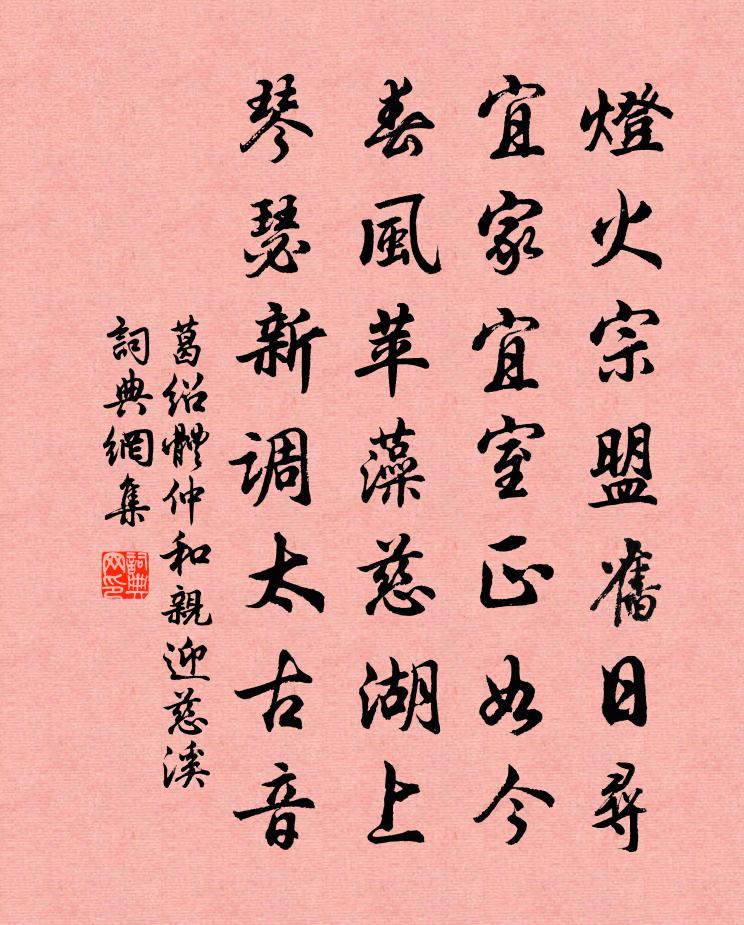 燈火宗盟舊日尋
宜家宜室正如今
春風苹藻慈湖上
琴瑟新调太古音
葛绍體仲和親迎慈溪
詞典網集
詞典
網印